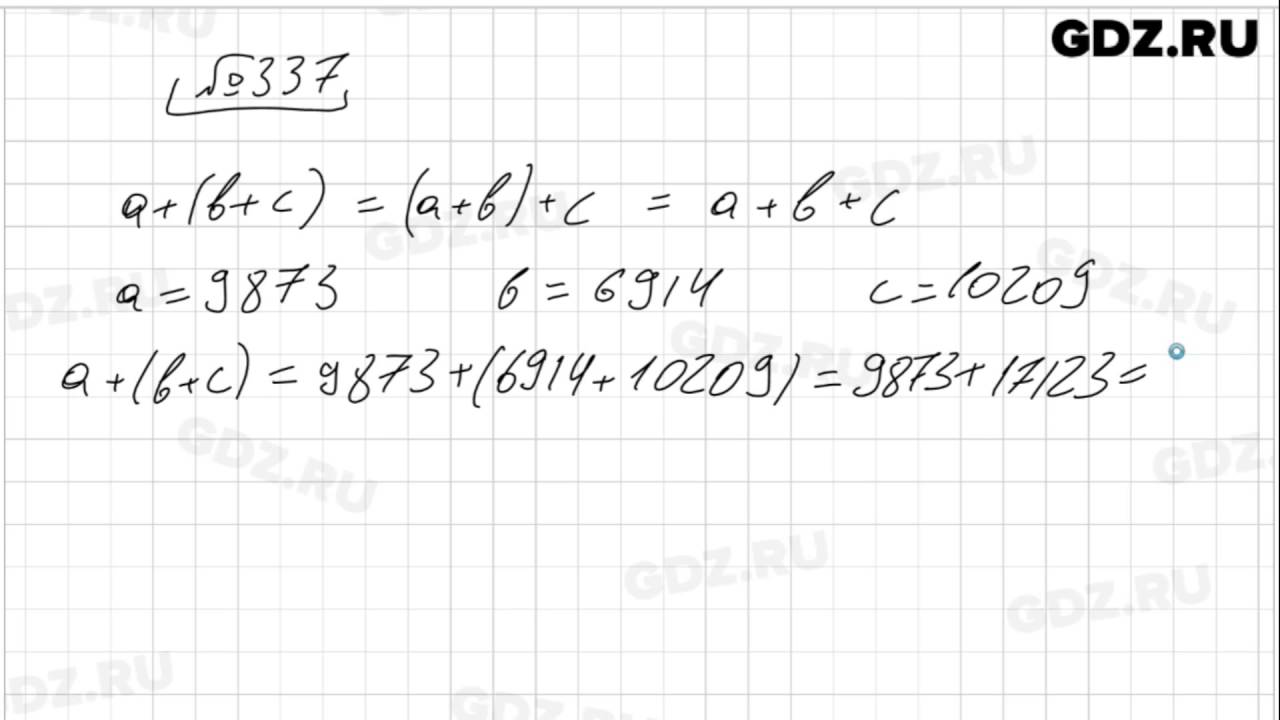 GDZ.RU
№337
a+(в+c) = (a+в)+c = a+в+c
a=9873 в=6914 c=10209
a+(в+c)=9873+(6914+10209)=9873+17123=